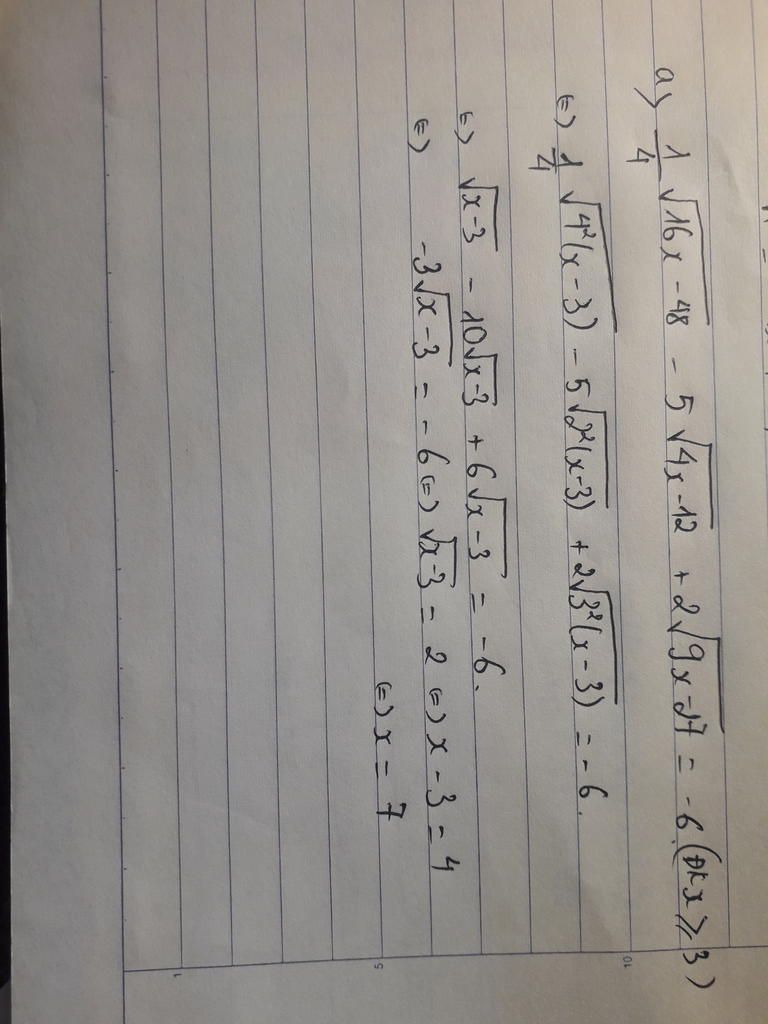 a) 1/4 √(16x - 48) - 5√(4x - 12) + 2√(9x - 27) = -6 (ĐK x ⩾ 3)
(=) 1/4 √(4²(x - 3)) - 5√(2²(x - 3)) + 2√(3²(x - 3)) = -6.
(=) √(x - 3) - 10√(x - 3) + 6√(x - 3) = -6.
(=) -3√(x - 3) = -6 (=) √(x - 3) = 2 (=) x - 3 = 4
(=) x = 7
1
5
10